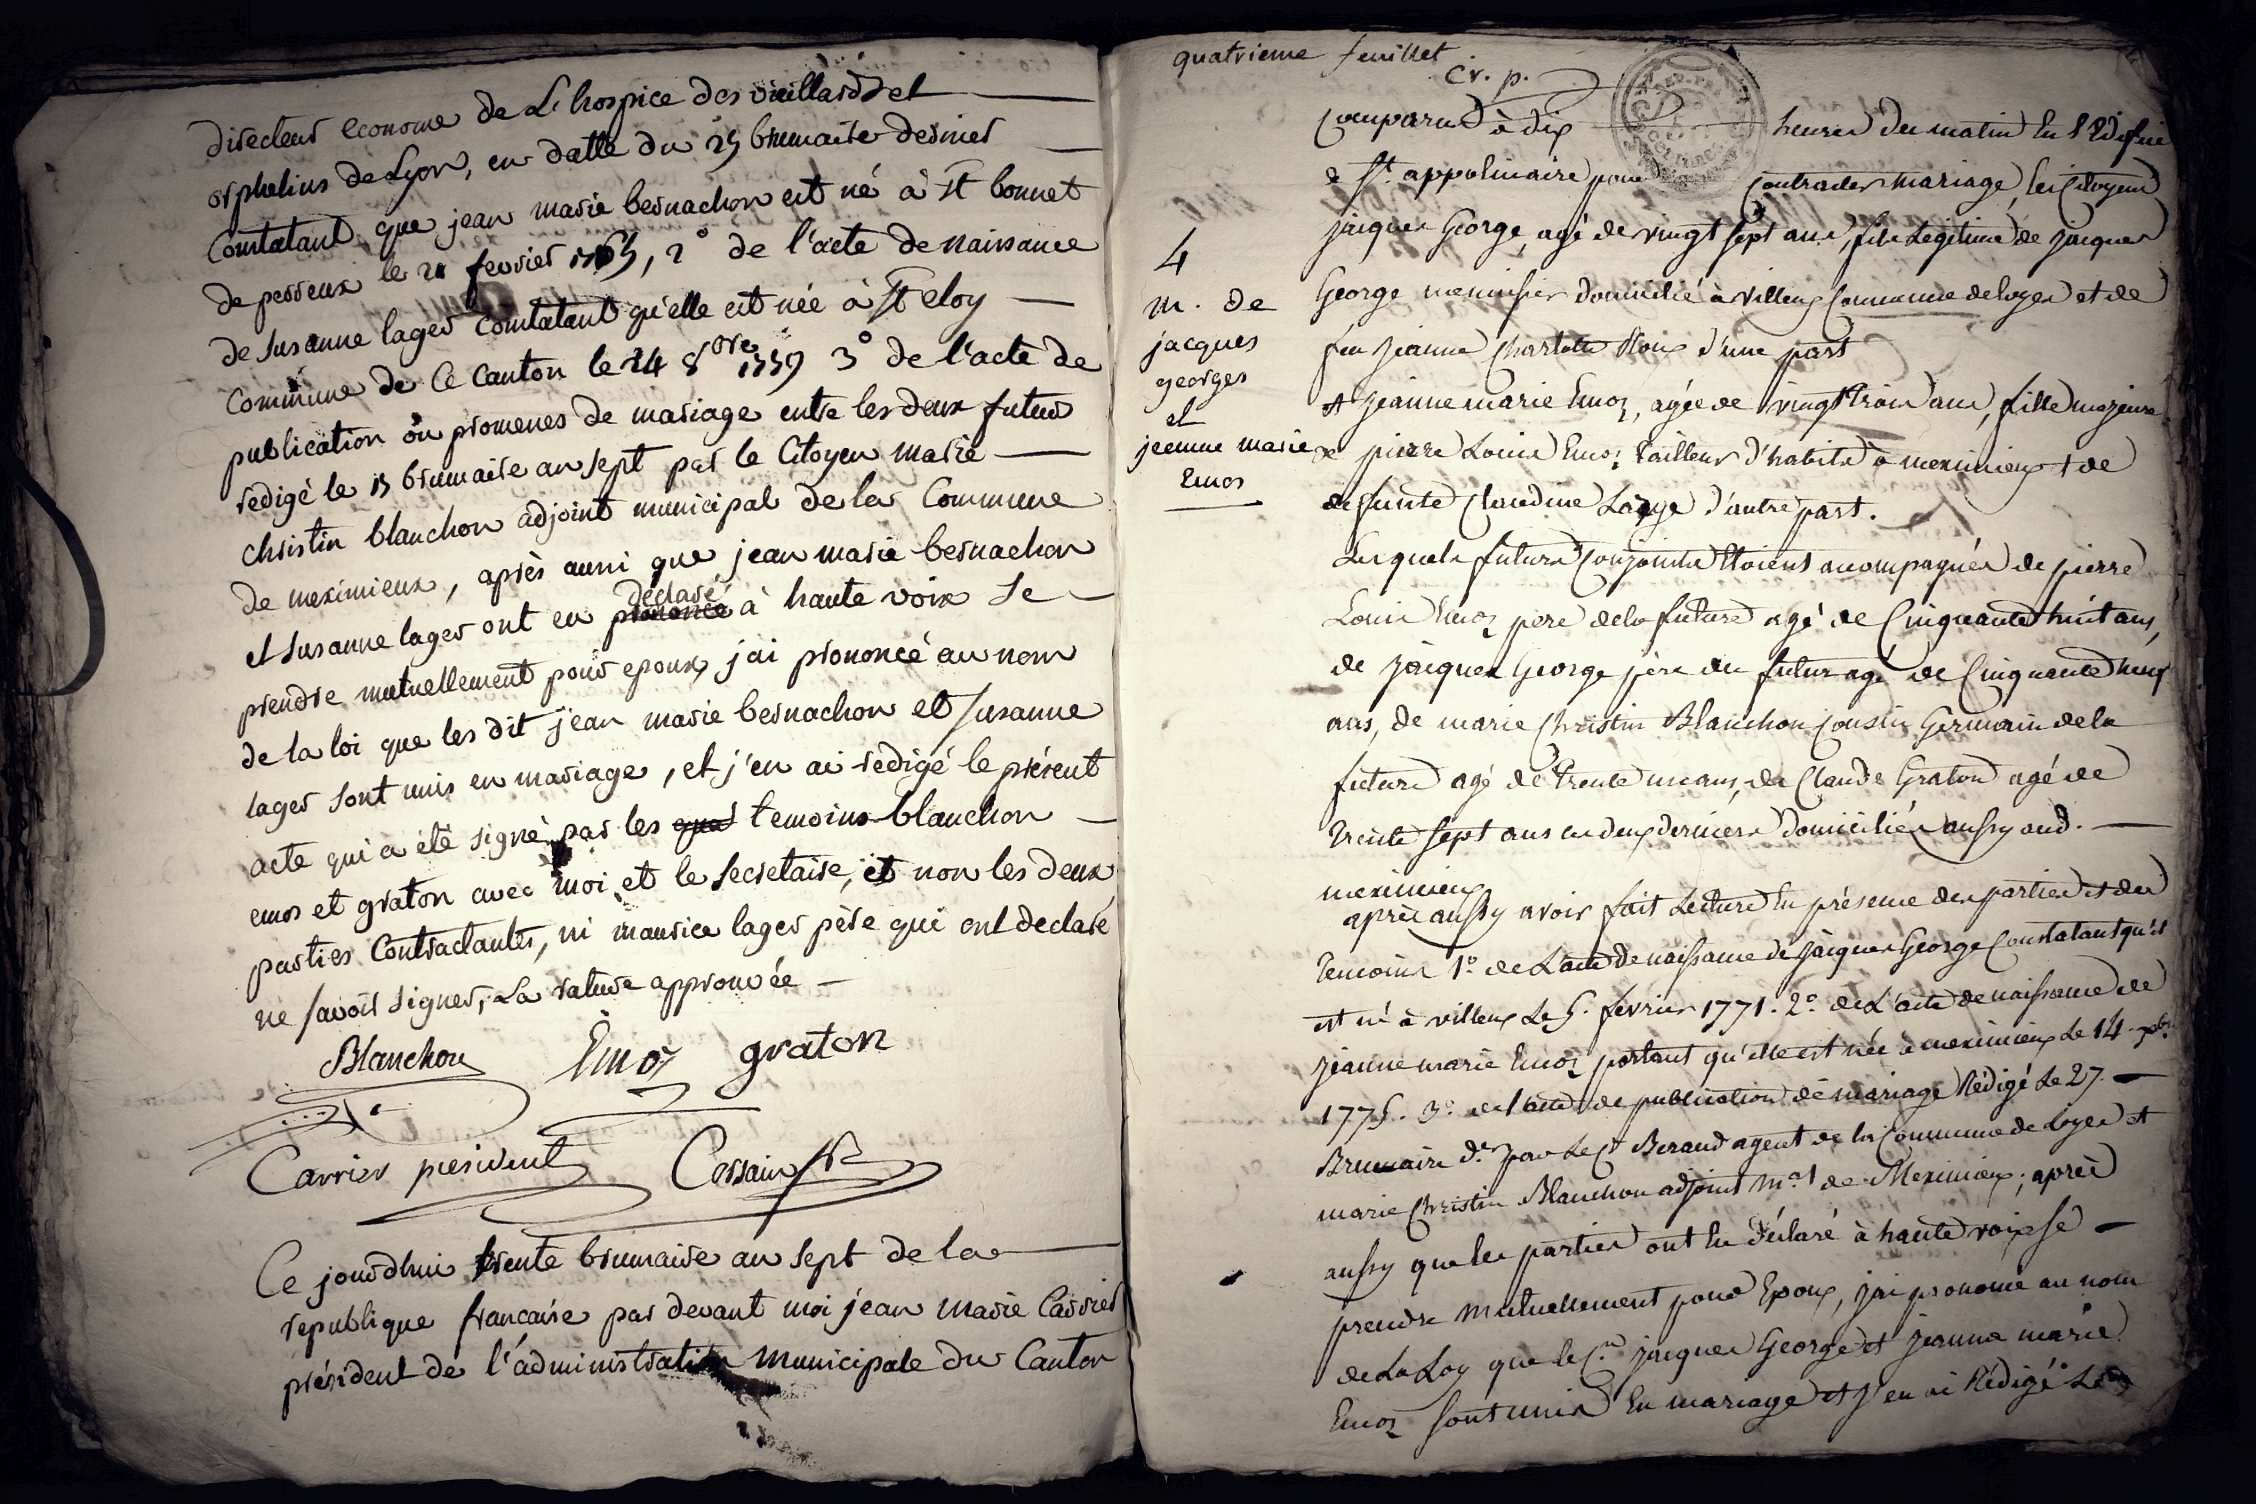 directeur econome de L'hospice des vieillards et
orphelins de Lyon, en datte du 29 brumaire dernier
Constatant que jean marie bernachon est né à St bonnet
de perreux le 21 fevrier, 2° de l'acte de naissance
de susanne lager Constatant qu'elle est née à St eloy
commune de Ce Canton le 24 8bre 1759 3° de l'acte de
publication ou promenes de mariage entre les deux futurs
redigé le 15 brumaire an sept par le Citoyen marie
christin blanchon adjoint municipal de la Commune
de meximieux, après aussi que jean marie bernachon
déclaré
et susanne lager ont eu prononcé à haute voix se
prendre mutuellement pour epoux, j'ai prononcé au nom
de la loi que les dit jean marie bernachon et susanne
lager sont unis en mariage, et j'en ai redigé le présent
acte qui a été signé par les temoins blanchon
emoz et graton avec moi et le secretaire, et non les deux
parties Contractantes, ni maurice lager père qui ont declaré
ne savoir signer, La rature approuvée
Blanchon Emoz graton
Carrier president Cossain
Ce jourdhui trente brumaire an sept de la
republique française par devant moi jean marie Carrier
président de l'administration municipale du Canton
quatrieme feuillet
Cr. p.
Comparus à dix heures du matin en l'Edifice
de St. appolinaire pour Contracter mariage, les Citoyens
jacques George, agé de vingt sept ans, fils Legitime de jacques
George menuisier domicilié à villeux Commune de loyes et de
feu jeanne Charlotte d'une part
4
m. de
jacques
georges
et
jeenne marie
Emos
et jeanne marie Emoz, agée de vingt trois ans, fille majeure
de pierre Louis Emoz tailleur d'habits à meximieux et de
deffunte Claudine Laage d'autre part.
Lesquels futurs Conjoints Etoient acompagnés de pierre
Louis Emoz pere de la future agé de Cinquante huit ans,
de jacques George père du futur agé de Cinquante neuf
ans, de marie Christin Blanchon Cousin Germain de la
future agé de trente un ans, de Claude Graton agé de
trente sept ans ces deux derniers domiciliés aussy aud.
meximieux
après aussy avoir fait Lecture En présence des parties et des
Temoins 1° de L'acte de naissance de jacques George Constatant qu'il
est né à villeux Le 5. fevrier 1771. 2° de L'acte de naissance de
jeanne marie Emoz portant qu'elle est née à meximieux Le 14. 7bre
1775. 3° de l'acte de publication de mariage Rédigé Le 27.
Brumaire dr. par Le Ct Beraud agent de la Commune de Loyes et
marie Christin Blanchon adjoint mal de Meximieux; après
aussy que les parties ont Eu Déclaré à haute voix se
prendre mutuellement pour Epoux, j'ai prononcé au nom
de La Loy que le Cn jacques George et jeanne marie
Emoz sont unis En mariage et j'en ai Rédigé Le